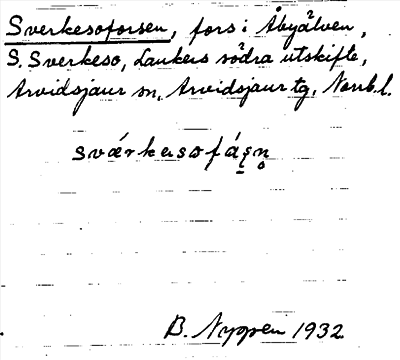 Sverkesoforsen, fors i Åbyälven,
S. Sverkeso, Laukers södra utskifte,
Arvidsjaur sn, Arvidsjaur tg, Norrb. l.
sværkasofáṣn̥
B. Nyppen 1932